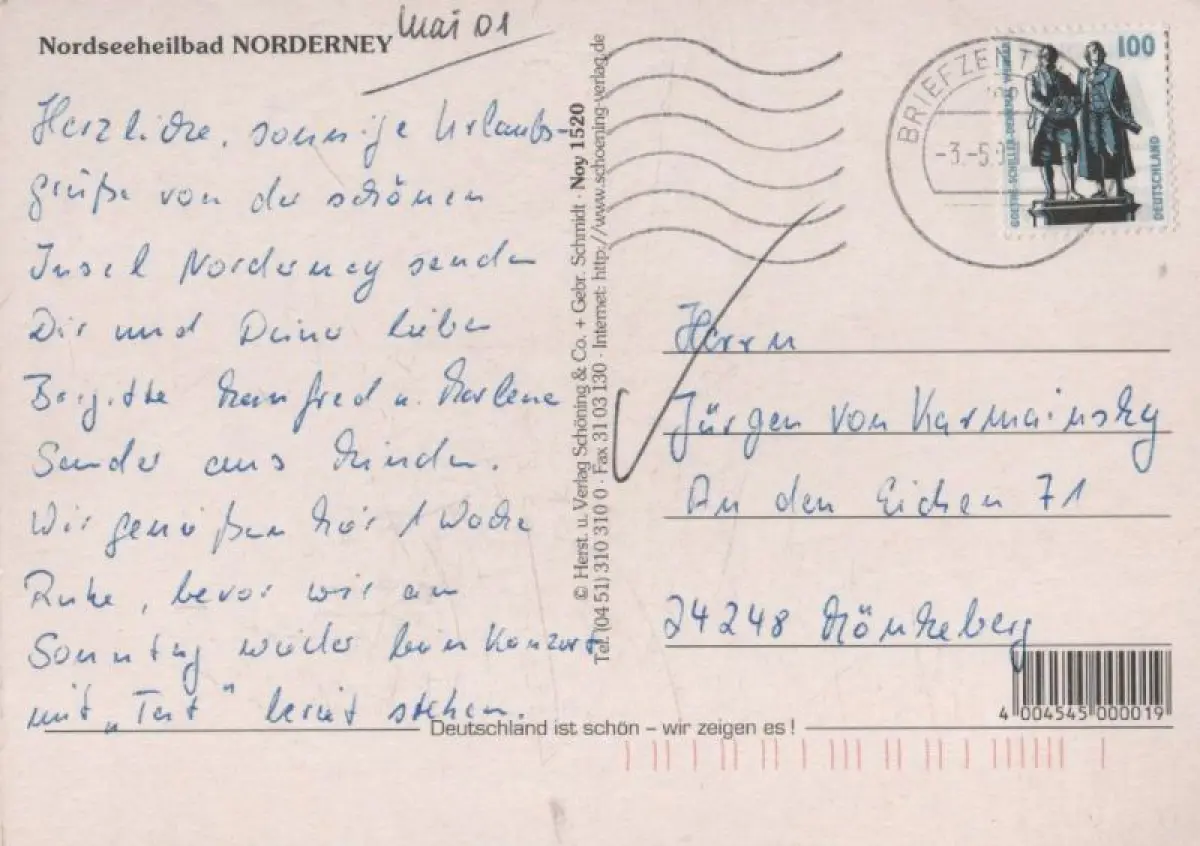 Nordseeheilbad NORDERNEY
Mai 01
Herzliche, sonnige Urlaubs-
grüße von der schönen
Insel Norderney senden
Dir und Deinen lieben
Brigitte Manfred u. Marlene
Sander aus Minden.
Wir genießen hier 1 Woche
Ruhe, bevor wir am
Sonntag wieder beim Konzert
mit „Tat“ bereit stehen.
© Herst. u. Verlag Schöning & Co. + Gebr. Schmidt · Noy 1520
Tel. (04 51) 310 310 0 · Fax 31 03 130 · Internet: http://www.schoening-verlag.de
BRIEFZENT
-3.-5.
100
GOETHE-SCHILLER-DENKMAL WEIMAR
DEUTSCHLAND
Herrn
Jürgen von Karmainsky
An den Eichen 71
24248 Mönkeberg
4 004545 000019
Deutschland ist schön – wir zeigen es !